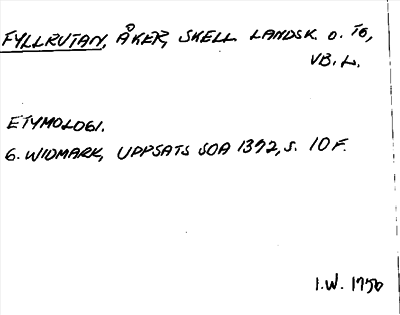 FYLLRUTAN, ÅKER, SKELL. LANDSK. O. TG,
VB. L.
ETYMOLOGI.
G. WIDMARK, UPPSATS SOA 1392, S. 10 F.
I.W. 1956